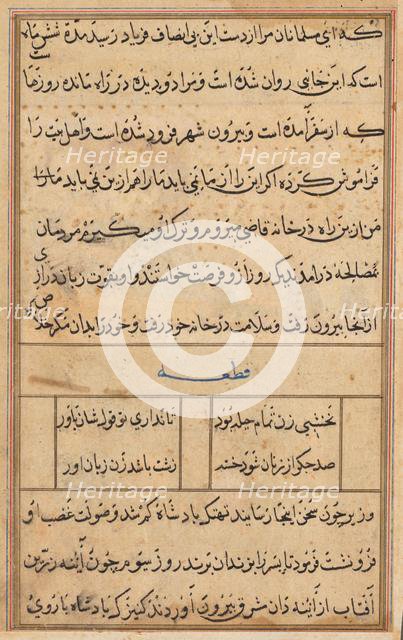 که ای مسلمانان مرا از دست این بی انصاف فریاد رسید مدة شش ماه
است که این جانبی روان شده است و مرا دو دیده در راه مانده روزها
که از سفر آمده است و بیرون شهر فرود شده است و اهل بیت را
فراموش کرده اکر این را از ما نمی باید ما را هم از این نمی باید
من از بن راه در خانه قاضی میروم و ترک او میکیرم مردمان
بمصالحه در آمدند یکر روز از و فرصت خواستند و او بقوت زبان درازی
از آنجا بیرون رفت و سلامت در خانه خود رفت و خود را بدان مکر خلاص
قطعه
نخشبی زن تمام حیله بود
تا نداری تو قول شان باور
صد جکر از زنان شود خسته
زشت باشد زن زبان اور
وزیر چون سخن اینجا رسانید تهتک پادشاه کم شد و صولت غضب او
فرو نشست فرمود تا پسر را بزندان بردند روز سیوم چون آینه زرین
آفتاب از آینه دان مشرق بیرون آوردند کنیزک پادشاه با روی
Heritage
Heritage
Heritage
Heritage
Heritage
Heritage
©